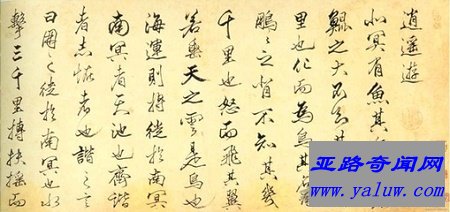 逍遥遊
北冥有魚其
鯤之大不知其
里也化而為鳥其名
鵬〻之背不知其幾
千里也怒而飛其翼
若垂天之雲是鳥也
海運則將徙於南冥
南冥者天池也齊諧
者志怪者也諧之言
曰鵬之徙於南冥也水
擊三千里摶扶搖而
亚路奇闻网
www.yaluw.com